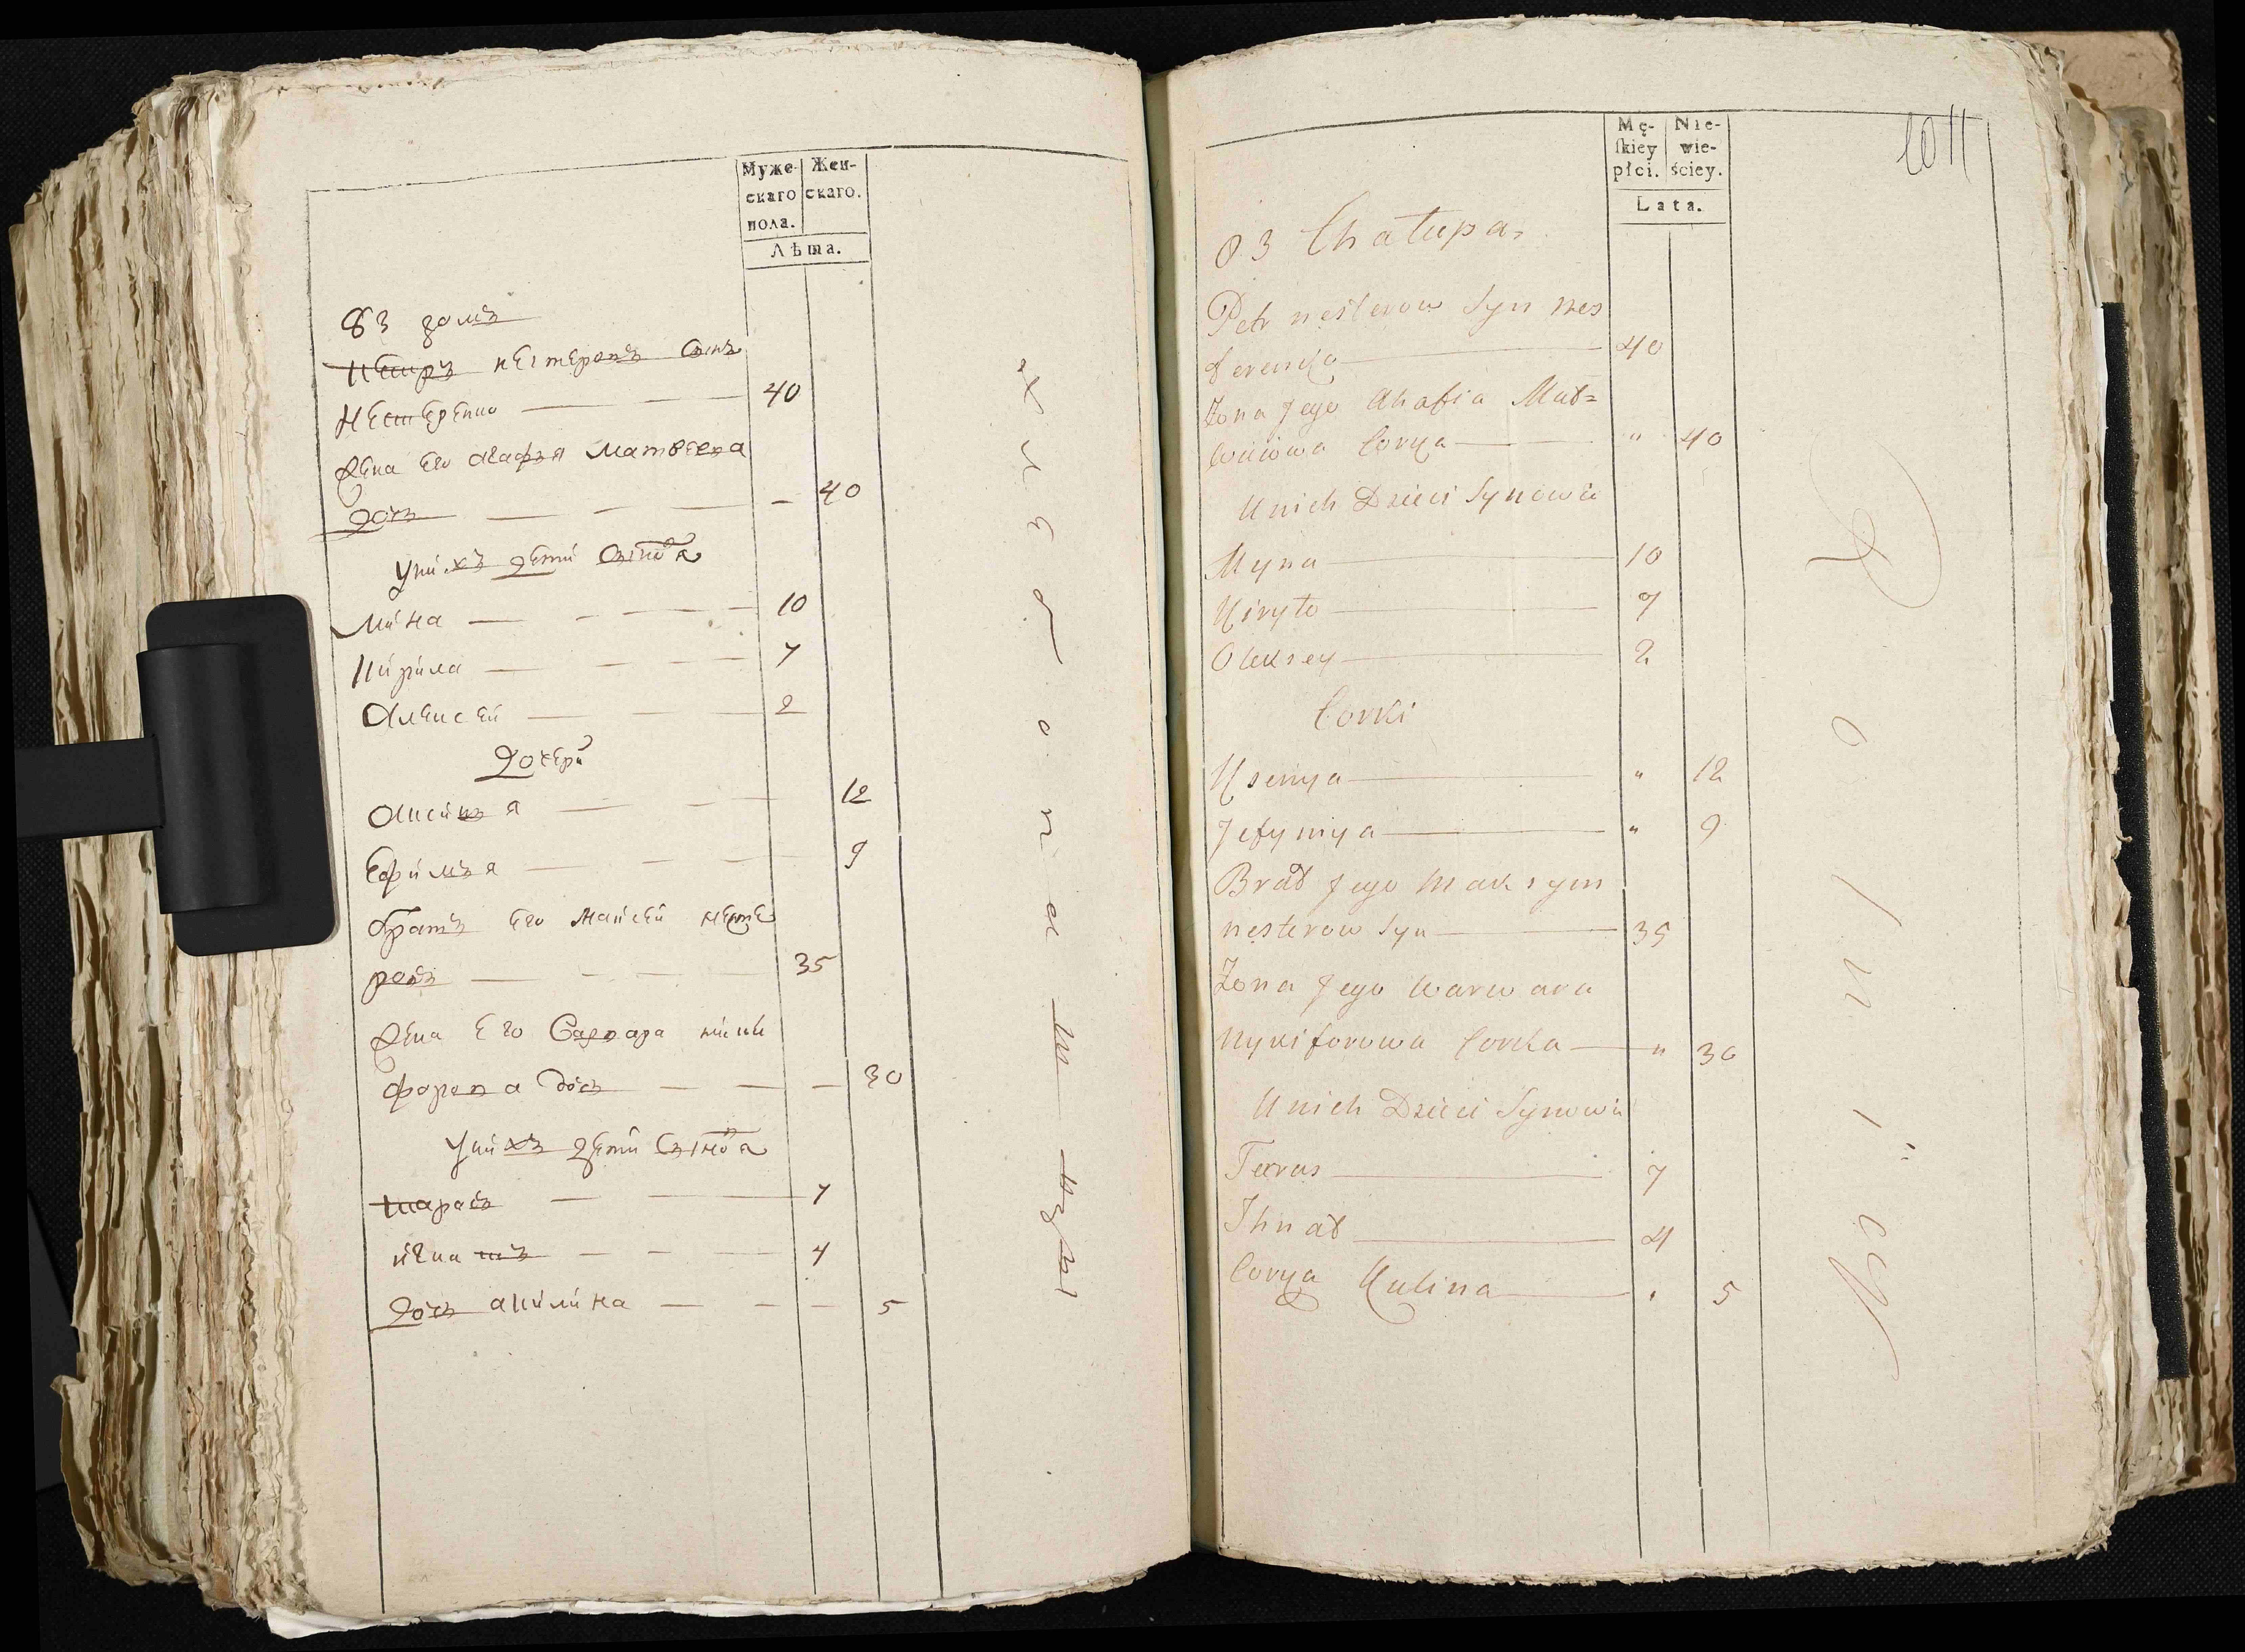 Муже-
скаго
пола.
Жен-
скаго.
Лѣта.
83 домъ
Петръ нестеровъ сынъ
Нестеренко 40
Жена Его агафья Матвеева
дочь 40
у нихъ дети сынов̾я
Мина 10
Кирила 7
Алексей 2
Дочери
Аксинья 12
Ефимья 9
братъ Его Мансей несте
ровъ 35
Жена Его Варвара ники
форова дочь 30
у нихъ дети сынов̾я
тарасъ 7
игнатъ 4
дочь акилина 5
Mę-
ſkiey
płci.
Nie-
wie-
ściey.
Lata.
1011
83 Chałupa.
Petr nesterow Syn nes
terenko 40
Żona Jego Ahafia Mat=
wiiowa Corka " 40
U nich Dzieci Synowie
Myna 10
Kiryło 7
Oleksey 2
Corki
Ksenya " 12
Jefymya " 9
Brat Jego Maksym
nesterow Syn 35
Żona Jego Warwara
Nykiforowa Corka " 30
U nich Dzieci Synowie
Taras 7
Ihnat 4
Corka Kulina 5